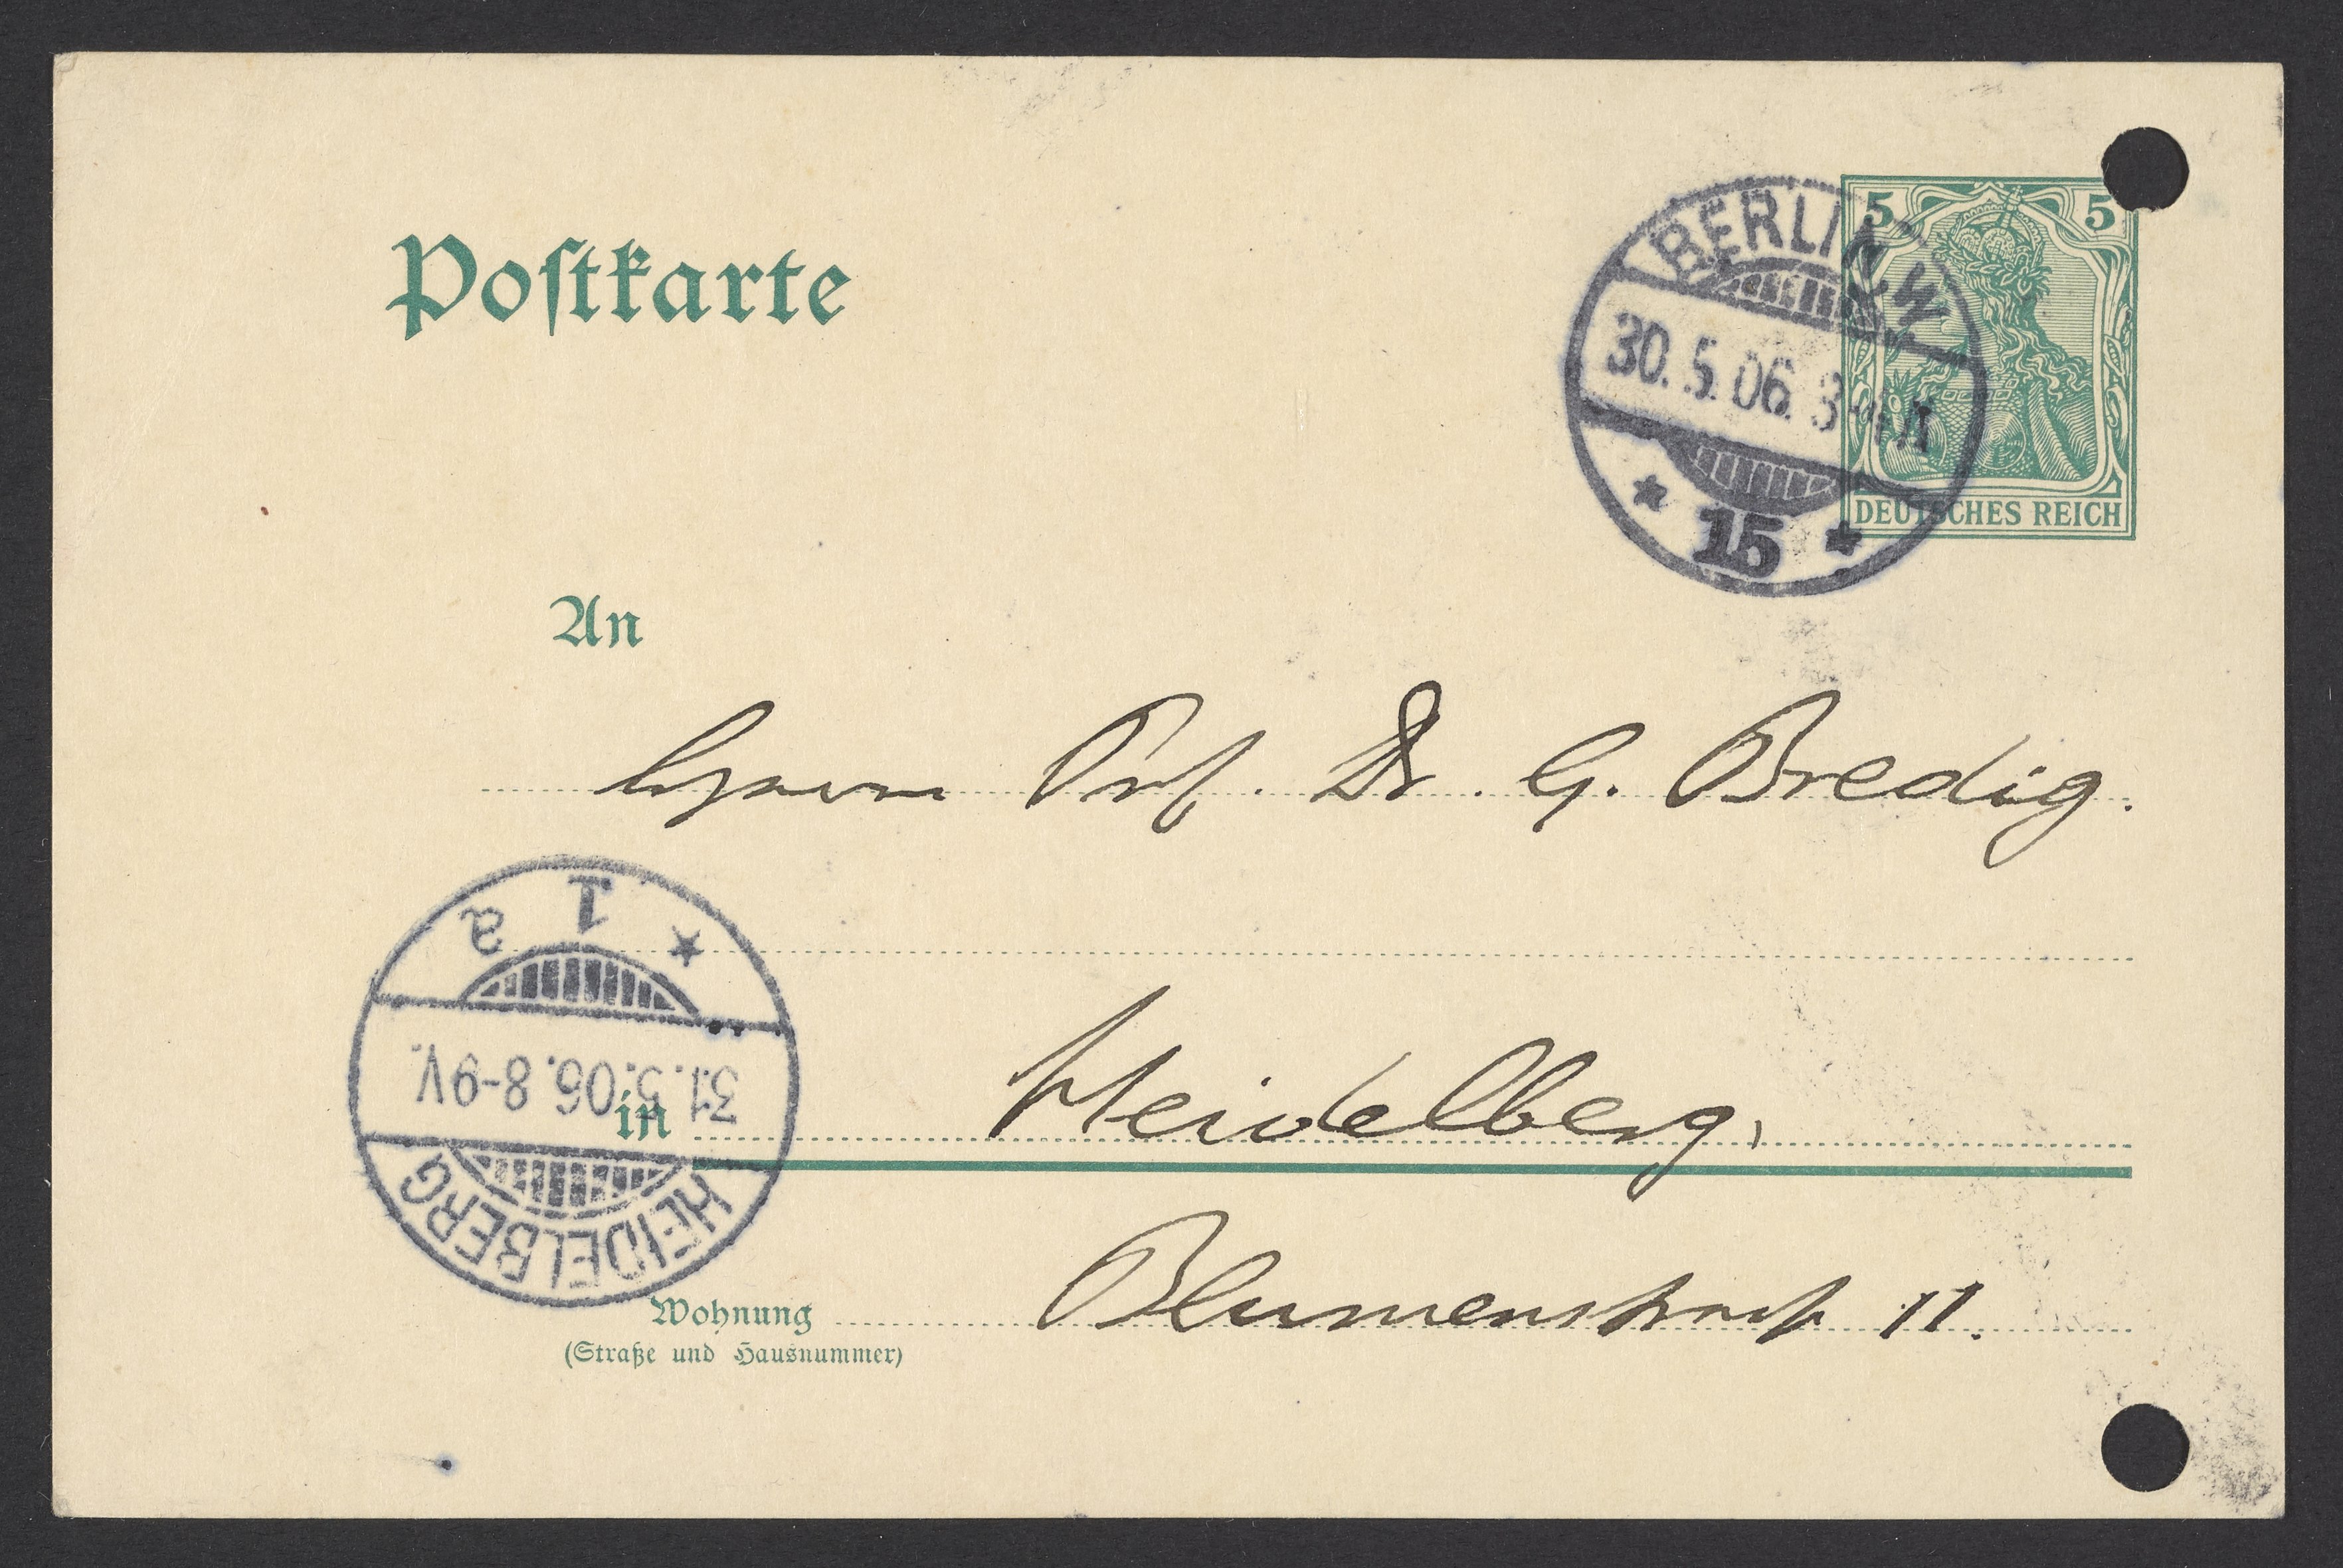 Postkarte
BERLIN W
30.5.06. 3-4N
* 15 *
5 5
DEUTSCHES REICH
An
Herrn Prof. Dr. G. Bredig.
1 a
31.5.06. 8-9V.
HEIDELBERG
in Heidelberg,
Wohnung Blumenstraße 11.
(Straße und Hausnummer)